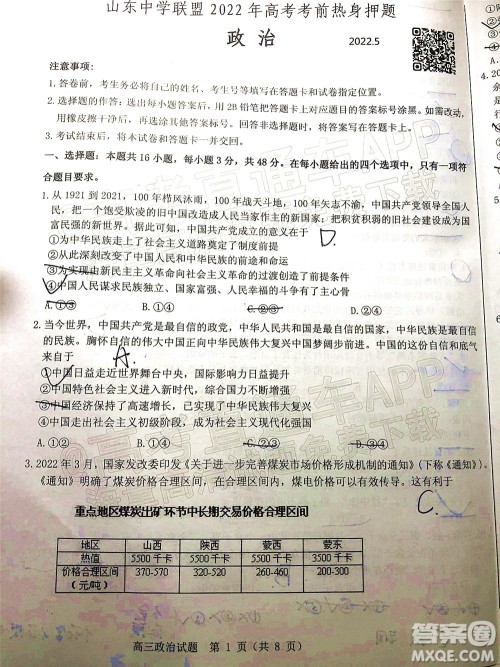 山东中学联盟 2022 年高考考前热身押题
政 治
2022.5
注意事项：
1.答卷前，考生务必将自己的姓名、考生号等填写在答题卡和试卷指定位置。
2.选择题的作答：选出每小题答案后，用 2B 铅笔把答题卡上对应题目的答案标号涂黑。如需改动，
用橡皮擦干净后，再选涂其他答案标号。非选择题的作答：用签字笔直接写在答题卡上对应的答题区域内。
3.考试结束后，将本试卷和答题卡一并交回。
一、选择题：本题共 16 小题，每小题 3 分，共 48 分。在每小题给出的四个选项中，只有一项符
合题目要求。
1.从 1921 到 2021，100 年栉风沐雨，100 年战天斗地，100 年矢志不渝，中国共产党领导全国人
民，把一个饱受欺凌的旧中国改造成人民当家作主的新国家；把积贫积弱的旧社会建设成为国
富民强的新世界。中国共产党成立的意义在于
D.
①为中华民族走上社会主义道路奠定了制度前提
②从此深刻改变了近代以来中华民族的前途和命运
③为实现由新民主主义革命向社会主义革命的过渡创造了前提
④中国人民谋求民族独立、国家富强、人民幸福的斗争有了主心骨
A.①③ B.①④ C.②③ D.②④
2.当今世界，中国共产党是最自信的政党，中华人民共和国是最自信的国家，中华民族是最自信
的民族。胸怀自信的伟大中国正向实现中华民族伟大复兴中国梦阔步前进。中国的这份自信和底气
来自于
A.
①中国日益走近世界舞台中央，国际影响力日益提升
②中国特色社会主义进入新时代，综合国力不断提高
③中国经济保持了高速增长，已实现了中华民族伟大复兴
④中国处于社会主义初级阶段，成功走出了社会主义现代化强国
A.①② B.①④ C.②③ D.③④
3.2022 年 3 月，国家发改委印发《关于进一步完善煤炭市场价格形成机制的通知》（下称《通知》）。
《通知》明确了煤炭价格合理区间，在合理区间内，煤电价格可以有效传导。这有利于
C.
重点地区煤炭出矿环节中长期交易价格合理区间
地区 山西 陕西 蒙西 蒙东
热值 5500 千卡 5500 千卡 5500 千卡 3500 千卡
价格合理区间（元/吨） 370-570 320-520 260-460 200-300
高三政治试题 第 1 页（共 8 页）
答案圈